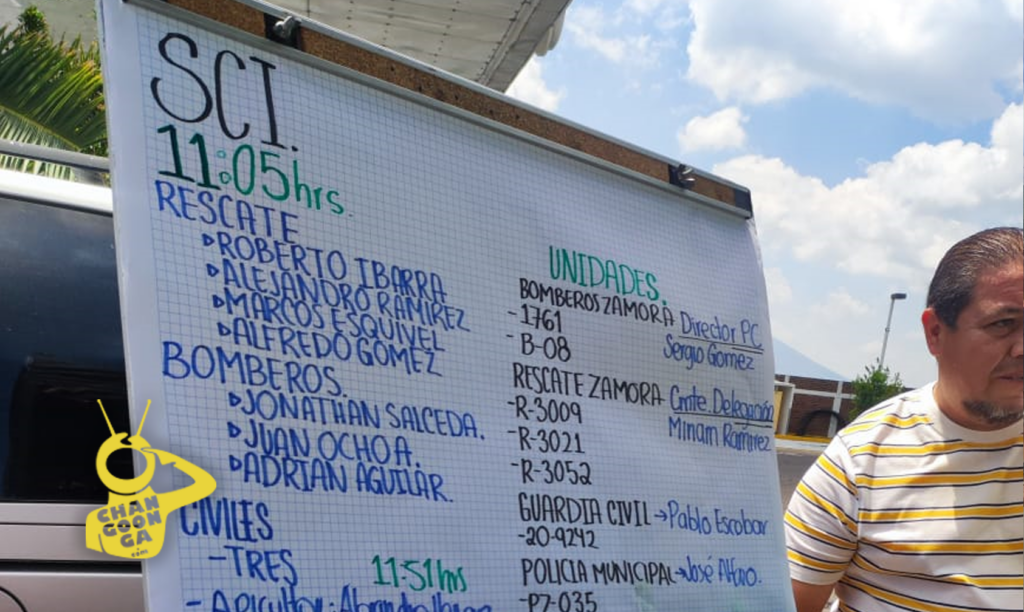 SCI.
11:05hrs.
RESCATE
ROBERTO IBARRA
ALEJANDRO RAMIREZ
MARCOS ESQUIVEL
ALFREDO GOMEZ
BOMBEROS.
JONATHAN SALCEDA.
JUAN OCHOA.
ADRIAN AGUILAR.
CIVILES
-TRES 11:51hrs
- Apicultor:
UNIDADES.
BOMBEROS ZAMORA Director PC.
-1761 Sergio Gomez
- B-08
RESCATE ZAMORA Cmte. Delegación
-R-3009 Miriam Ramirez
-R-3021
-R-3052
GUARDIA CIVIL → Pablo Escobar
-20-9242
POLICIA MUNICIPAL → José Alfaro.
-P7-035
CHAN
GOON
GA
.com